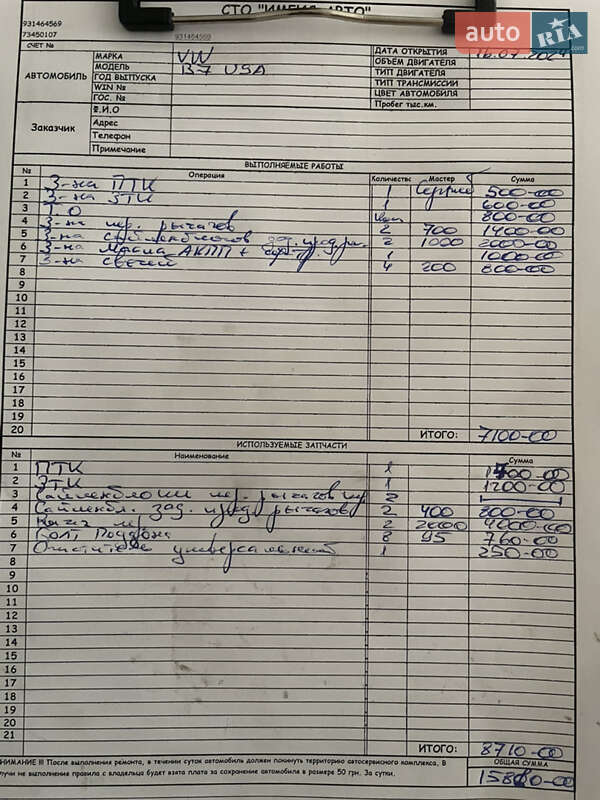 СТО "ИМЕНИЯ АВТО"
auto RIA.com
931464569
73450107
931464569
СЧЕТ №
МАРКА VW ДАТА ОТКРЫТИЯ 16.07.2024
МОДЕЛЬ B7 USA ОБЪЕМ ДВИГАТЕЛЯ
АВТОМОБИЛЬ ГОД ВЫПУСКА ТИП ДВИГАТЕЛЯ
WIN № ТИП ТРАНСМИССИИ
ГОС. № ЦВЕТ АВТОМОБИЛЯ
Ф.И.О Пробег тыс.км.
Заказчик Адрес
Телефон
Примечание
ВЫПОЛНЯЕМЫЕ РАБОТЫ
№ Операция Количество Мастер Сумма
1 З-на ПТК 1 Сергей 500-00
2 З-на ЗТК 1 600-00
3 Т.О 800-00
4 З-на пер. рычагов 2 700 1400-00
5 З-на сайлентблоков зад. прод. 2 1000 2000-00
6 З-на масла АКПП + 1 1000-00
7 З-на свечей 4 200 800-00
8
9
10
11
12
13
14
15
16
17
18
19
20 ИТОГО: 7100-00
ИСПОЛЬЗУЕМЫЕ ЗАПЧАСТИ
№ Наименование Сумма
1 ПТК 1
2 ЗТК 1 1200-00
3 Сайлентблоки пер. рычагов 2
4 Сайлентбл. зад. прод. рычагов 2 400 800-00
5 Рычаг пер 2 2000 4000-00
6 Болт Поддона 8 95 760-00
7 Очиститель универсальный 1 250-00
8
9
10
11
12
13
14
15
16
17
18
19
20
21
ИТОГО: 8710-00
ВНИМАНИЕ !!! После выполнения ремонта, в течении суток автомобиль должен покинуть территорию автосервисного комплекса. В ОБЩАЯ СУММА
случи не выполнения правила с владельца будет взята плата за сохранение автомобиля в размере 50 грн. За сутки. 15810-00